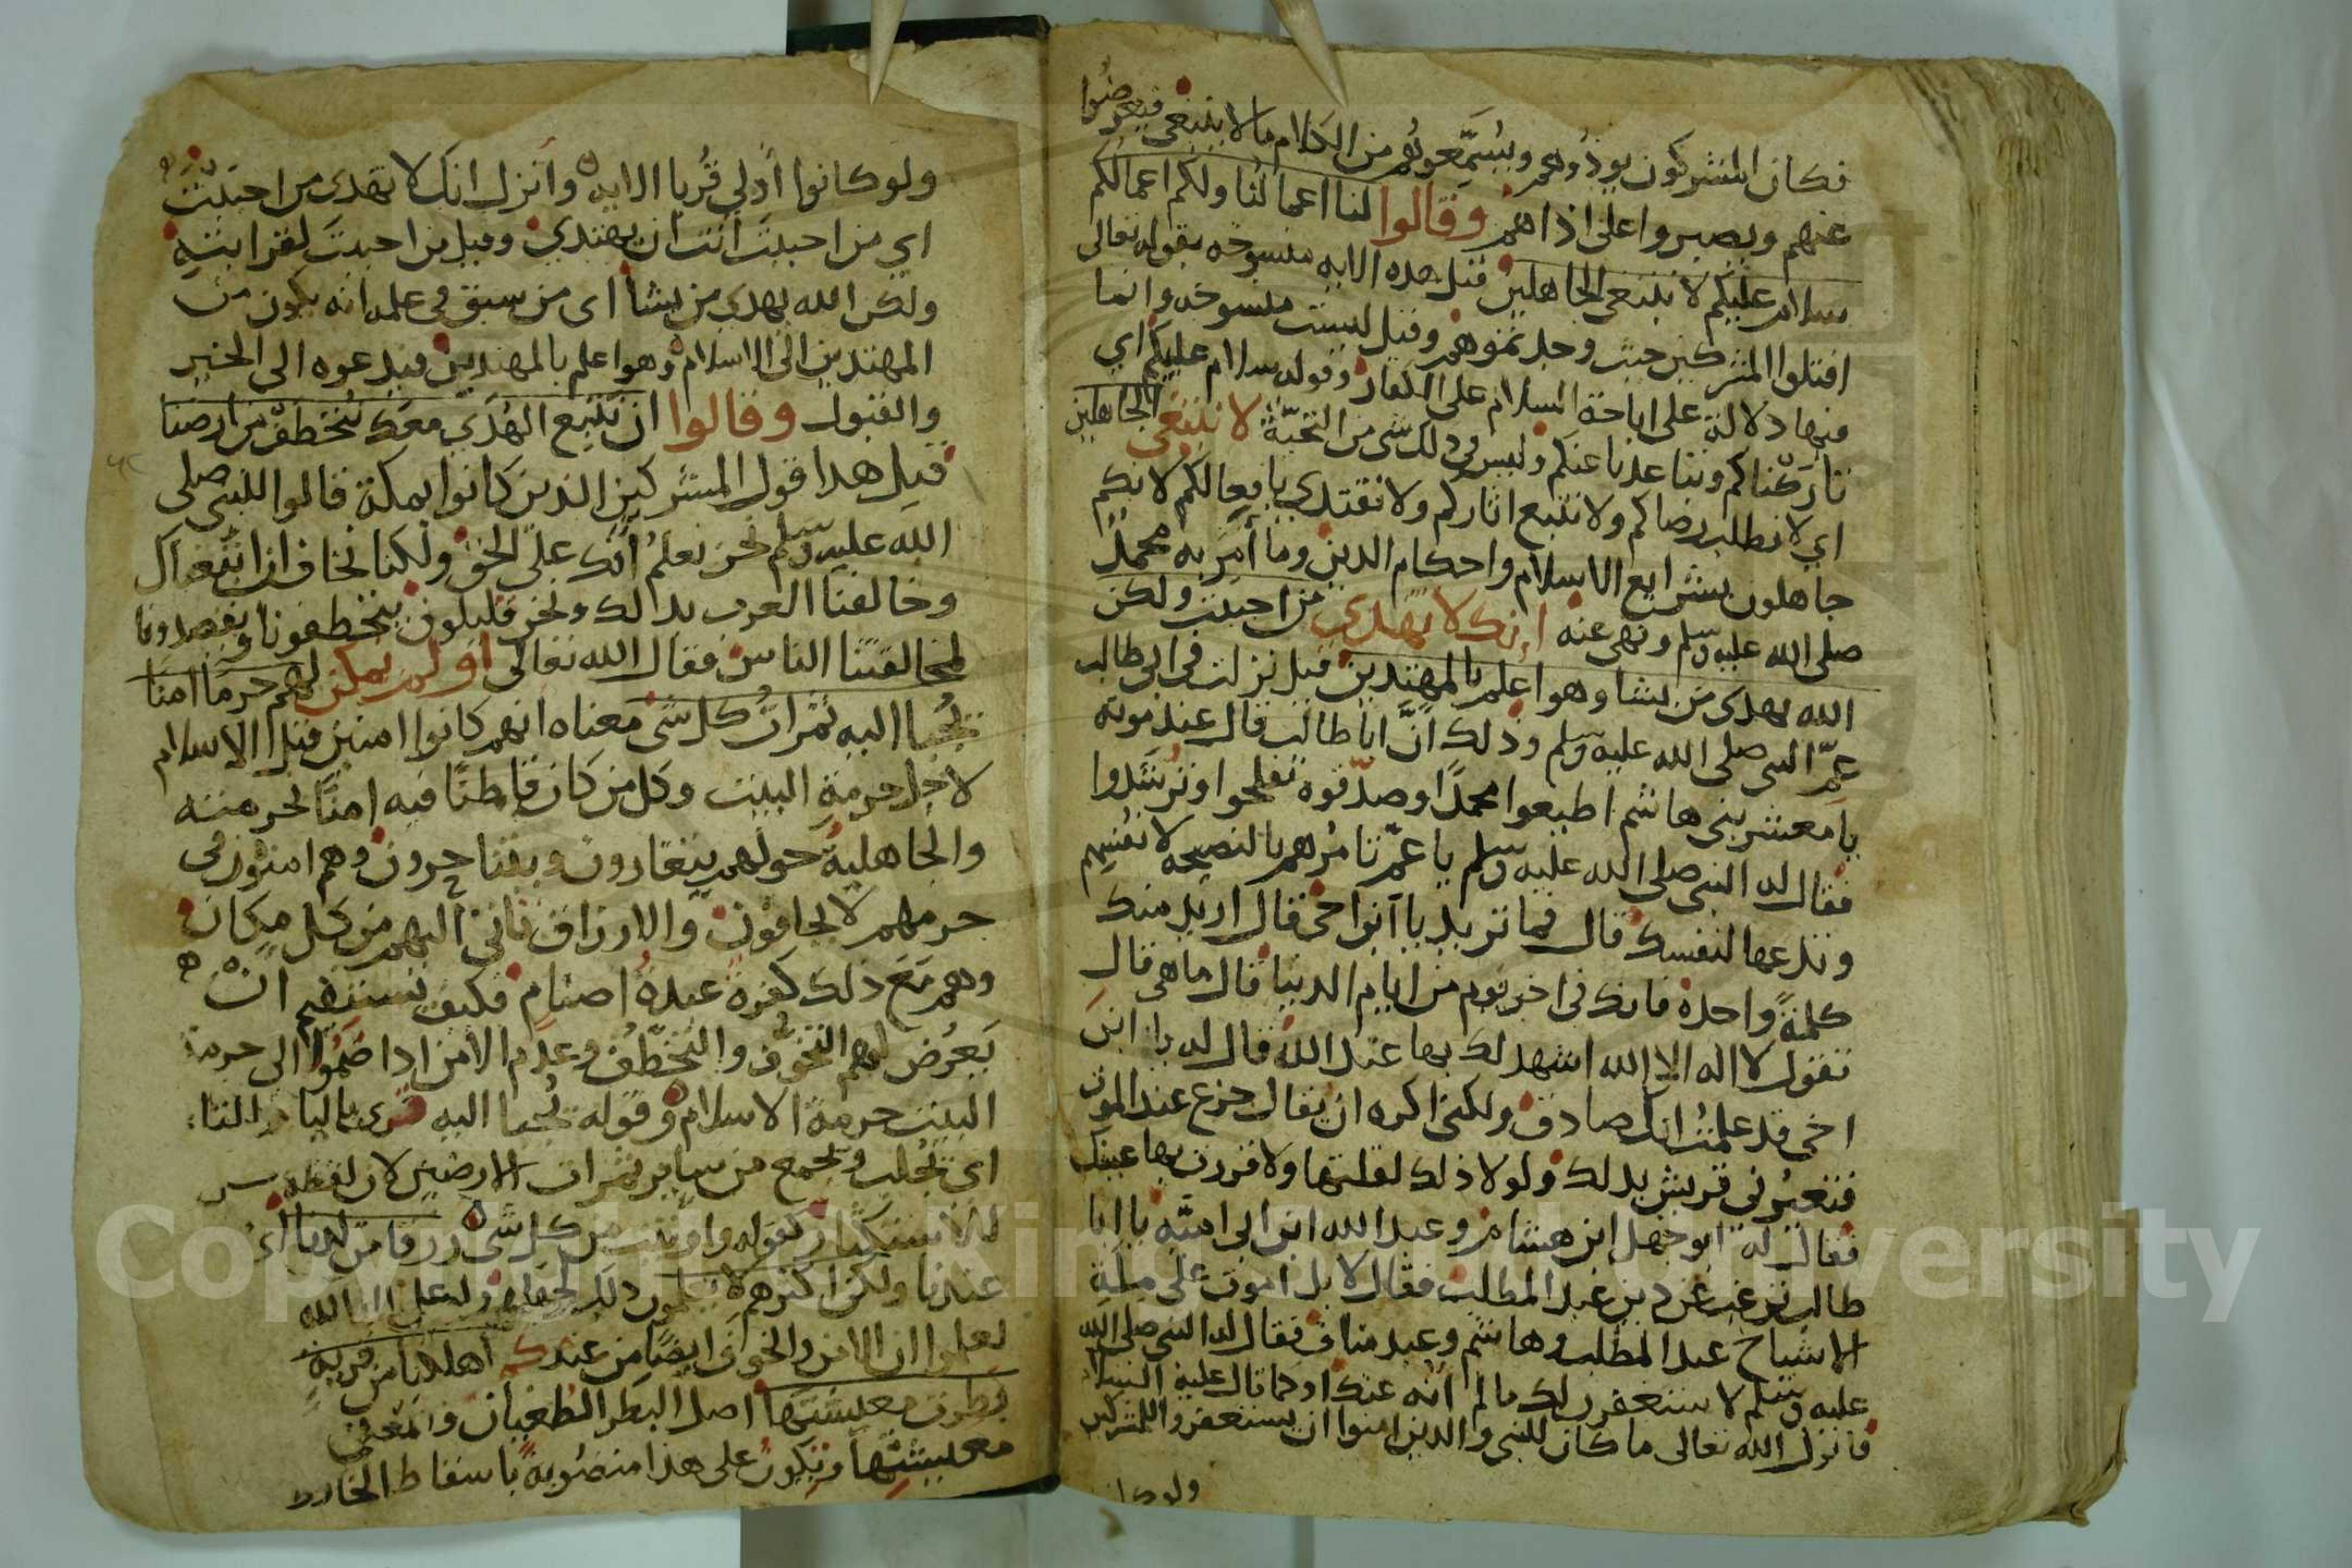 فكان المشركون يوذونهم ويسمعونهم من الكلام ما لا ينبغي فيعرضوا
عنهم ويصبروا على اذاهم وقالوا لنا اعمالنا ولكم اعمالكم
سلام عليكم لا نبتغي الجاهلين قيل هذه الايه منسوخه بقوله تعالى
اقتلوا المشركين حيث وجدتموهم وقيل ليست منسوخه وانما
فيها دلالة على اباحة السلام على الكفار وقوله سلام عليكم اي
تاركناكم وتباعدنا عنكم وليس في ذلك شي من التحيّة لا نبتغي الجاهلين
اي لا نطلب رضاكم ولا نتبع اثاركم ولا نقتدي بافعالكم لانكم
جاهلون بشرايع الاسلام واحكام الدين وما أمر به محمد
صلى الله عليه وسلم ونهى عنه انك لا تهدي من احببت ولكن
الله يهدى من يشا وهو اعلم بالمهتدين قيل نزلت في ابي طالب
عمّ النبي صلى الله عليه وسلم وذلك انّ ابا طالب قال عند موته
يا معشر بني هاشم اطيعوا محمدًا وصدّقوه تفلحوا وترشدوا
فقال له النبي صلى الله عليه وسلم يا عمّ تامرهم بالنصيحه لانفسهم
وتدعها لنفسك قال فما تريد يا ابن اخي قال اريد منك
كلمةً واحدة فانك في اخر يوم من ايام الدنيا قال ما هي قال
تقول لا اله الا الله اشهد لك بها عند الله قال له يا ابن
اخي قد علمت انك صادق ولكني اكره ان يقال جزع عند الموت
فتعيرني قريش بذلك ولولا ذلك لقلتها ولاقررت بها عينك
فقال له ابو جهل ابن هشام وعبد الله ابن ابي امية يا ابا
طالب ترغب عن دين عبد المطلب فقال لا بل اموت على ملة
الاشياخ عبد المطلب وهاشم وعبد مناف فقال له النبي صلى الله
عليه وسلم لا ستغفرن لك ما لم انه عنك او كما قال عليه السلام
فانزل الله تعالى ما كان للنبي والذين امنوا ان يستغفروا للمشركين
ولو كا
ولو كانوا أولي قُربا الايه وانزل انك لا تهدى من احببت
اي من احببت أنت ان يهتدي وقيل من احببت لقرابته
ولكن الله يهدي من يشا اى من سبق في علمه انه يكون من
المهتدين الى الاسلام وهو اعلم بالمهتدين فيدعوه الى الخير
والقبول وقالوا ان نتبع الهدي معك نتخطف من ارضنا
قيل هذا قول المشركين الذين كانوا بمكة قالوا للنبي صلى
الله عليه وسلم نحن نعلم أنك على الحق ولكنا نخاف ان اتبعناك
وخالفنا العرب بذالك ونحن قليلون يتخطفونا ويقصدونا
لمخالفتنا الناس فقال الله تعالى اولم نمكن لهم حرما امنا
يُجبا اليه ثمرات كل شي معناه انهم كانوا امنين قبل الاسلام
لاجل حرمة البيت وكل من كان قاطنًا فيه امنًا لحرمته
والجاهلية حولهم يتغارون ويتناحرون وهم امنون في
حرمهم لا يخافون والارزاق تاتي اليهم من كل مكان
وهم مع ذلك كفرة عبدة اصنام فكيف يستقيم ان
يَعرُض لهم التخوّف والتخطّف وعدم الامن اذا ضمّوا الى حرمة
البيت حرمة الاسلام وقوله يُجبا اليه قرى باليا والتا
اي تُجلب وتجمع من ساير ثمرات الارضين لان لفظة
للاستكثار كقوله واوتيت من كل شي رزقا من لدنا اى
عندنا ولكن اكثرهم لا يعلمون ذلك
لعلموا ان الامن والخوف ايضًا من عند وكم اهلكنا من قرية
بطرت معيشتها اصل البطر الطغيان والمعنى في
معيشتها وتكون على هذا منصوبة باسقاط الخافض
Copyright © King Saud University